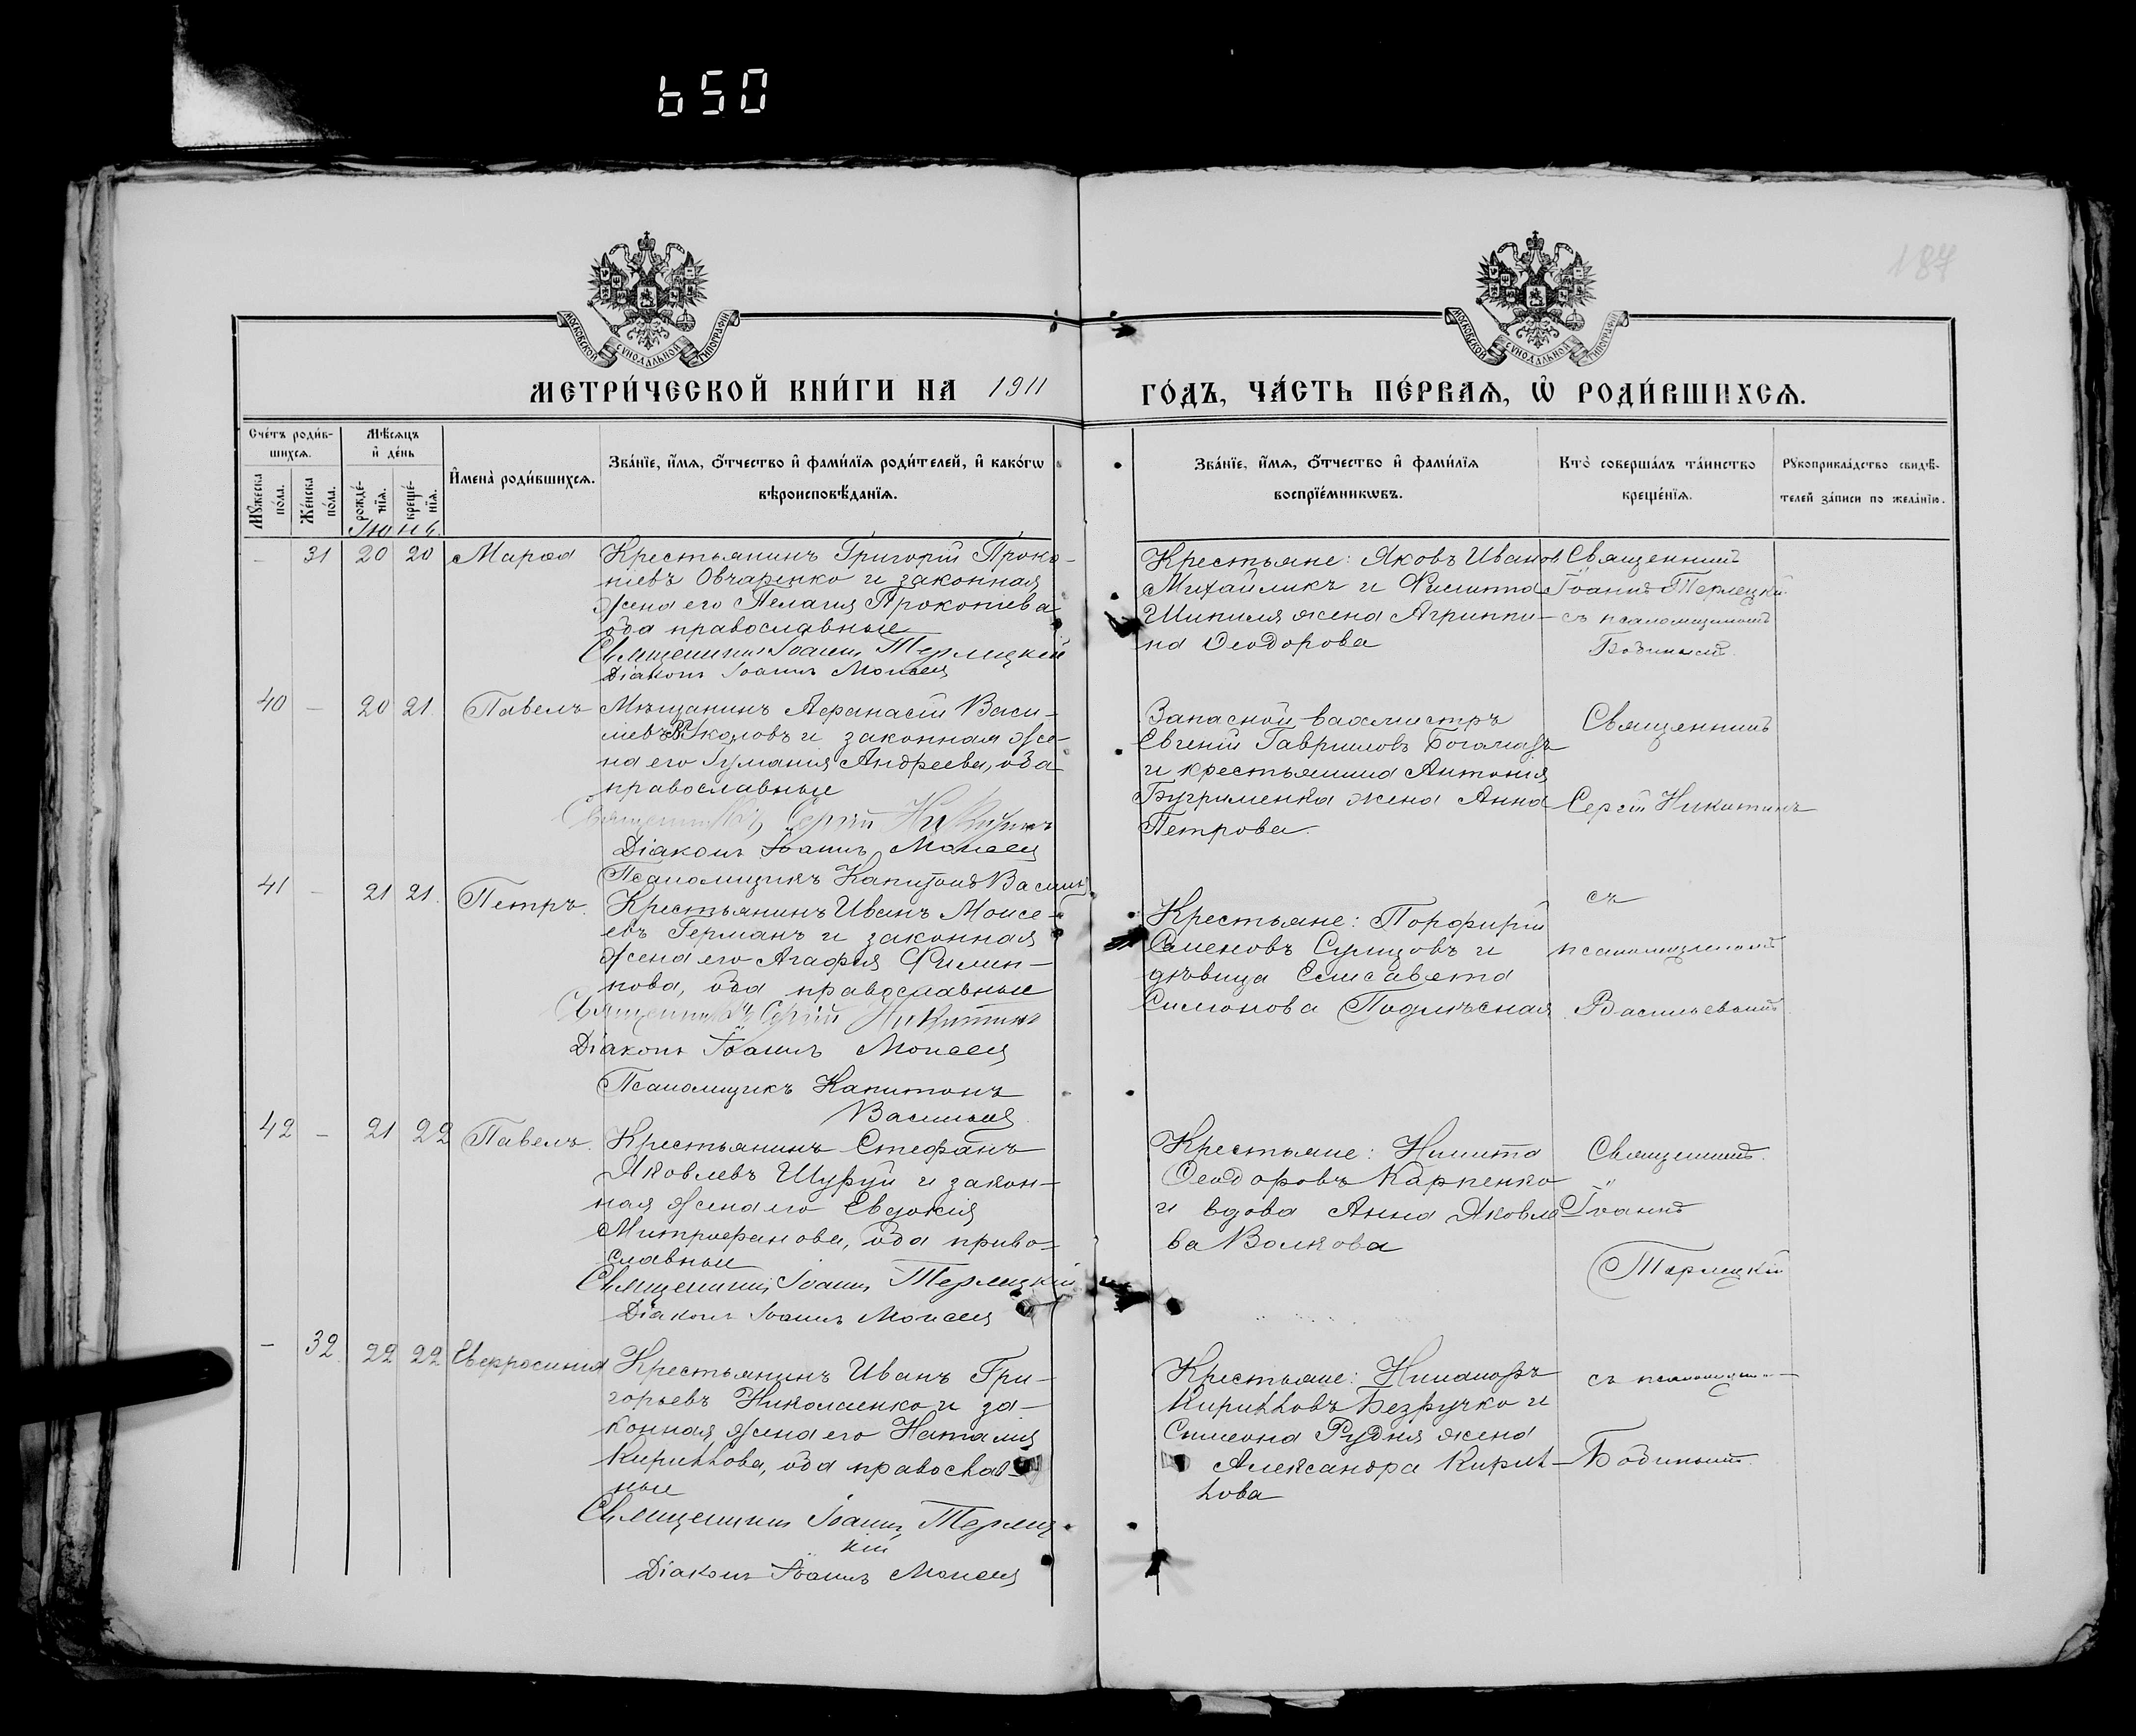 650
187
МОСКОВСКОЙ СѴНОДАЛЬНОЙ ТИПОГРАФІИ
МОСКОВСКОЙ СѴНОДАЛЬНОЙ ТИПОГРАФІИ
МЕТРИ́ЧЕСКОЙ КНИ́ГИ НА 1911
ГО́ДЪ, ЧА́СТЬ ПЕ́РВАѦ, Ѿ РОДИ́ВШИХСѦ.
Сче́тъ роди́в-
шихсѧ.
Мꙋ́жеска по́ла.
Же́нска по́ла.
Мѣ́сѧцъ
и҆ де́нь
рожде́-
нїѧ.
креще́-
нїѧ.
Іюнь
И҆мена̀ роди́вшихсѧ.
Зва́нїе, и҆́мѧ, ѻ҆́тчество и҆ фами́лїѧ роди́телей, и҆ како́гѡ
вѣроисповѣ́данїѧ.
Зва́нїе, и҆́мѧ, ѻ҆́тчество и҆ фами́лїѧ
воспрїе́мникѡвъ.
Кто̀ соверша́лъ та́инство
креще́нїѧ.
Рꙋкоприкла́дство свидѣ́-
телей за́писи по жела́нїю.
— 31 20 20 Марѳа
Крестьянинъ Григорій Проко-
піевъ Овчаренко и законная
жена его Пелагія Прокопіева
оба православные
Священникъ Іоаннъ Терлецкій
Діаконъ Іоаннъ Моисей
Крестьяне: Яковъ Иванов
Михайликъ и Филиппа
Шипиля жена Агриппи-
на Ѳеодорова
Священникъ
Іоаннъ Терлецкій
съ псаломщикомъ
40 — 20 21 Павелъ
Мѣщанинъ Аѳанасій Васи-
на его Іуліанія Андреева, оба
православные
Священникъ Сергій Никитинъ
Діаконъ Іоаннъ Моисей
Псаломщикъ Капитонъ
Запасной вахмистръ
Евгеній Гавриловъ Богомазъ
и крестьянина Антонія
Бугрименка жена Анна
Петрова.
Священникъ
Сергій Никитинъ
41 — 21 21. Петръ.
Крестьянинъ Иванъ Моисе-
евъ Германъ и законная
жена его Агафія Филип-
пова, оба православные
Священникъ Сергій Никитинъ
Діаконъ Іоаннъ Моисей
Псаломщикъ Капитонъ
Крестьяне: Порфирій
Семеновъ Сулицовъ и
дѣвица Елисавета
Симонова Подлѣсная
съ
псаломщикомъ
42 — 21 22 Павелъ.
Крестьянинъ Стефанъ
Яковлевъ Шуруй и закон-
ная жена его Евдокія
Митрофанова, оба право-
славные
Священникъ Іоаннъ Терлецкій
Діаконъ Іоаннъ Моисей
Крестьяне: Никита
Ѳеодоровъ Карпенко
и вдова Анна Яковле
ва Волкова
Священникъ
Іоаннъ
Терлецкій
— 32 22 22 Евфросинія
Крестьянинъ Иванъ Гри-
горьевъ Николаенко и за-
конная жена его Наталія
Кириллова, оба православ-
ные
Священникъ Іоаннъ Терлец-
кій
Діаконъ Іоаннъ Моисей
Крестьяне: Никаноръ
Кирилловъ Безручко и
Симеона Рудня жена
Александра Кирил-
лова
съ